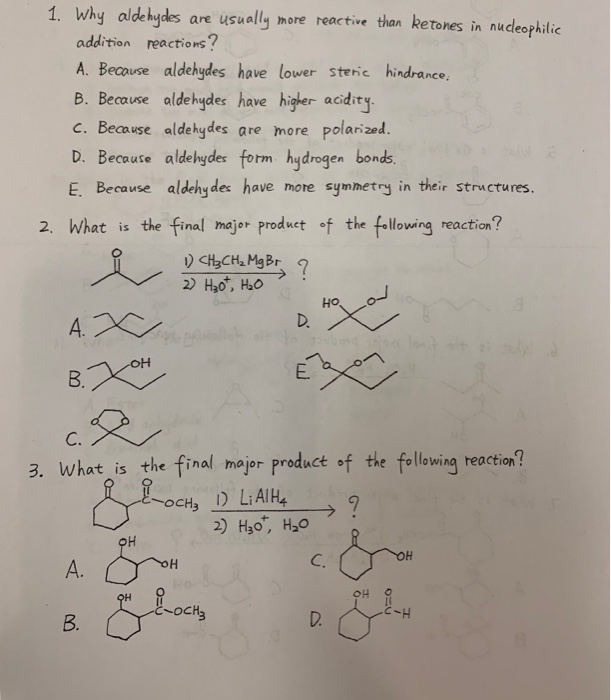 1. Why aldehydes are usually more reactive than ketones in nucleophilic
addition reactions?
A. Because aldehydes have lower steric hindrance.
B. Because aldehydes have higher acidity.
C. Because aldehydes are more polarized.
D. Because aldehydes form hydrogen bonds.
E. Because aldehydes have more symmetry in their structures.
2. What is the final major product of the following reaction?
O
1) CH3CH2MgBr
2) H3O+, H2O
?
A.
HO O
D.
B. OH
E. O O
C. O O
3. What is the final major product of the following reaction?
O O
C-OCH3
1) LiAlH4
2) H3O+, H2O
?
A. OH OH
C. O OH
B. OH O C-OCH3
D. OH O C-H